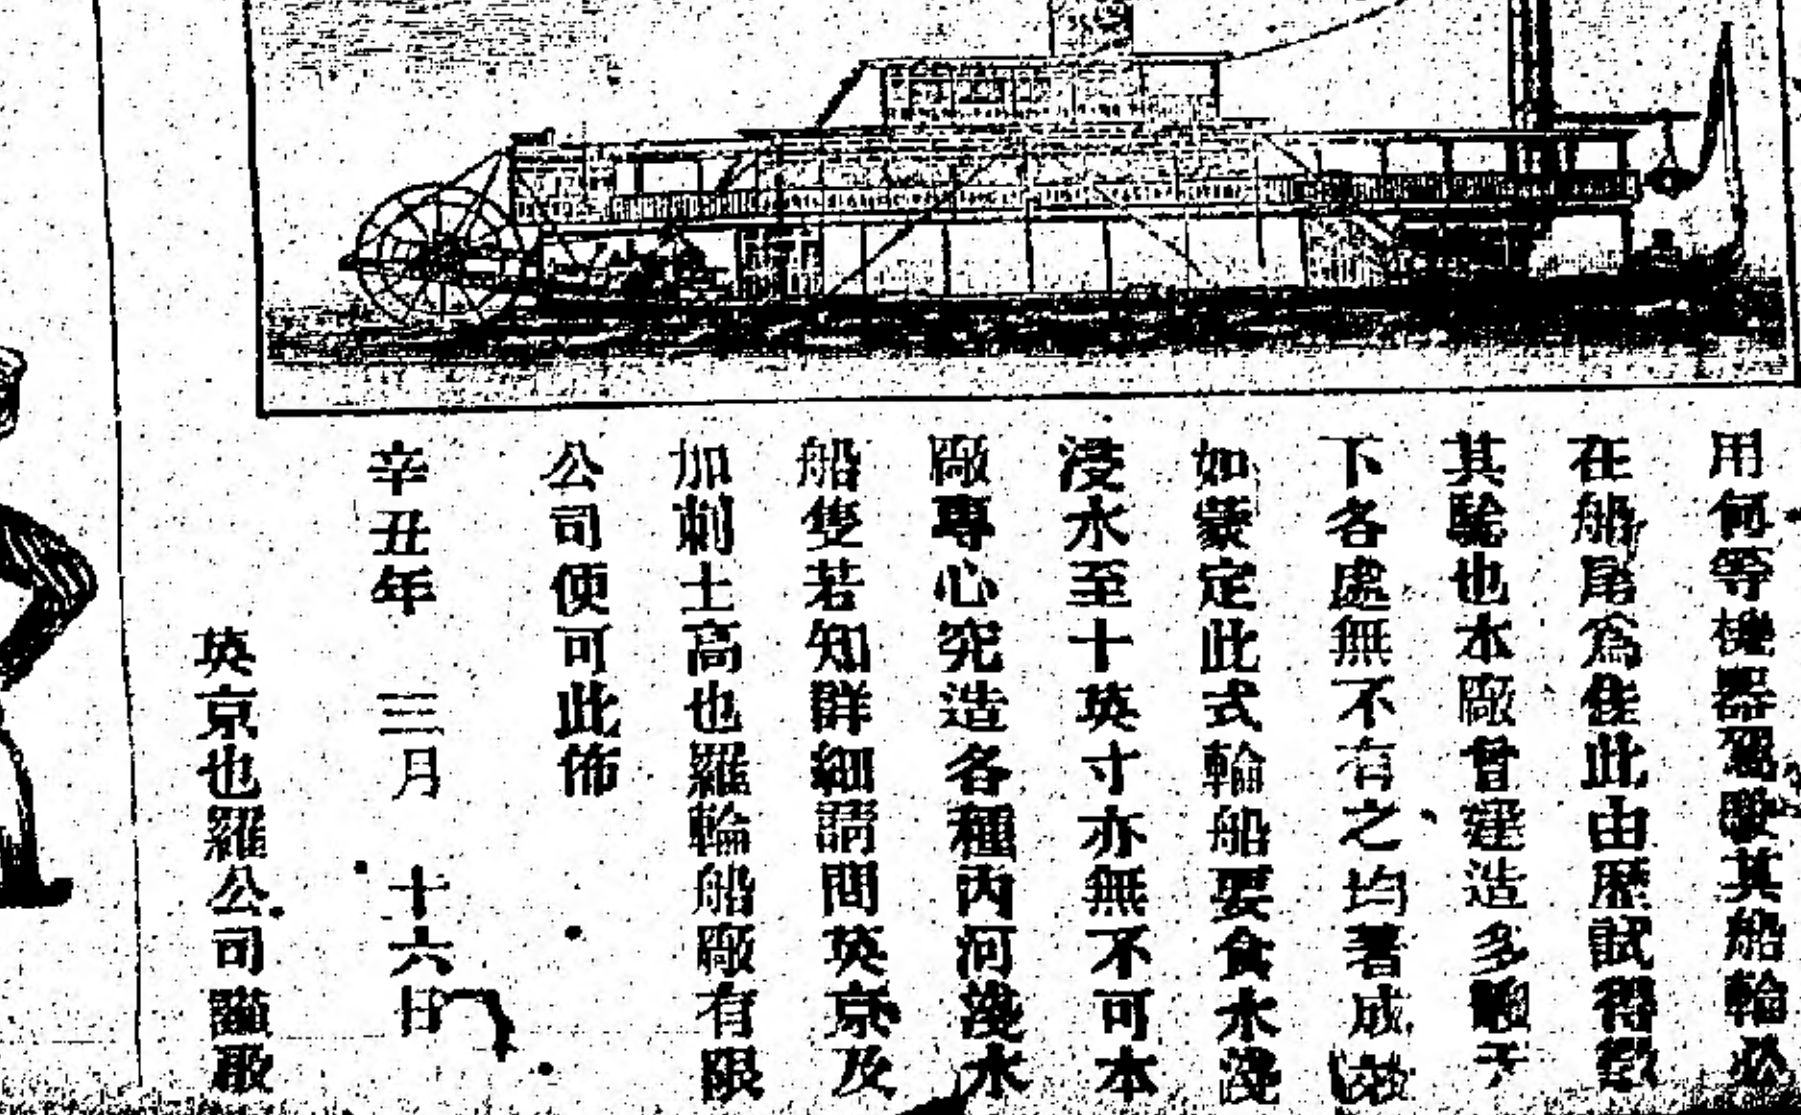 用何等機器駕駛其船輪必
在船尾為佳此由歷試得
其驗也本廠曾建造多艘于
下各處無不有之均著成效
如蒙定此式輪船要食水淺
浸水至十英寸亦無不可本
廠專心究造各種內河淺水
船隻若知群細請問英京及
加剌士高也羅輪船廠有限
公司便可此佈
辛丑年 三月 十六日
英京也羅公司謹啟